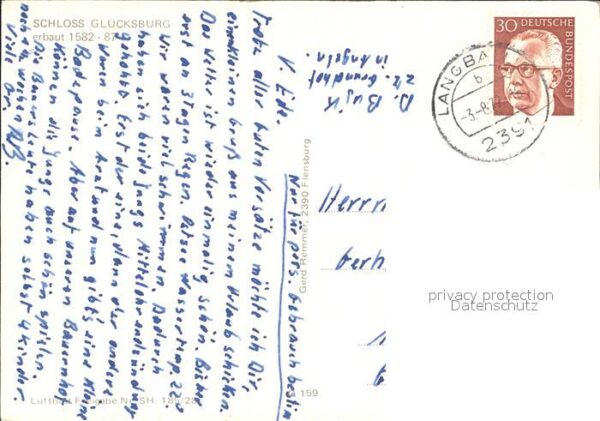 SCHLOSS GLÜCKSBURG
erbaut 1582 - 87
L. Ede.
Trotz aller guten Vorsätze möchte ich Dir,
einen kleinen Gruß aus meinem Urlaub schicken.
Das Wetter ist wieder einmalig schön. Bisher
erst an 3 Tagen Regen. Ostsee Wassertemp 22°.
Wir waren viel schwimmen. Dadurch
haben sich beide Jungs Mittelohrendzündung
geholt. Erst der eine, dann der andere
Waren beim Arzt und nun gibt's eine kleine
Badepause. Aber auf unseren Bauernhof
können die Jungs auch schön spielen.
Die Bauersleute haben selbst 4 Kinder.
noch ein
Viele Gr.
Nur für pers. Gebrauch bestimm
Gerd Remmer, 2390 Flensburg
D.
z. Zt. Grundhof
in Angeln
30 DEUTSCHE
BUNDESPOST
LANGBA
b
-3.-8.
2391
Herrn
Gerh
privacy protection
Datenschutz
159
Luftbild Freigabe Nr. SH: 185/28